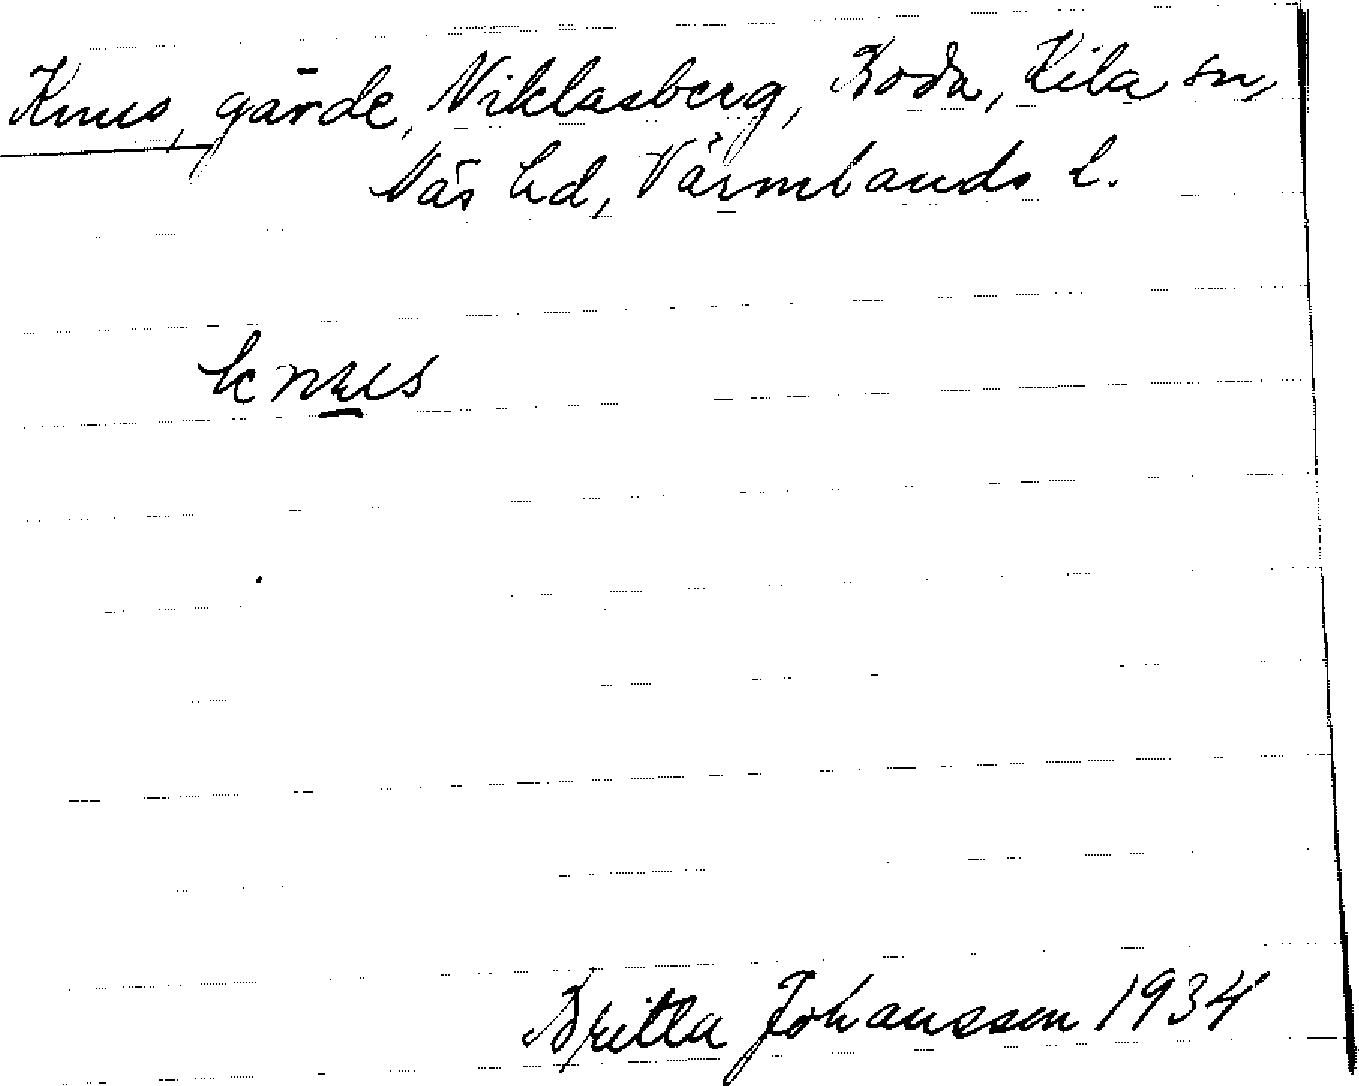 Knus, gärde, Niklasberg, Boda, Kila sn,
Näs hd, Värmlands l.
knus
Britta Johansson 1934